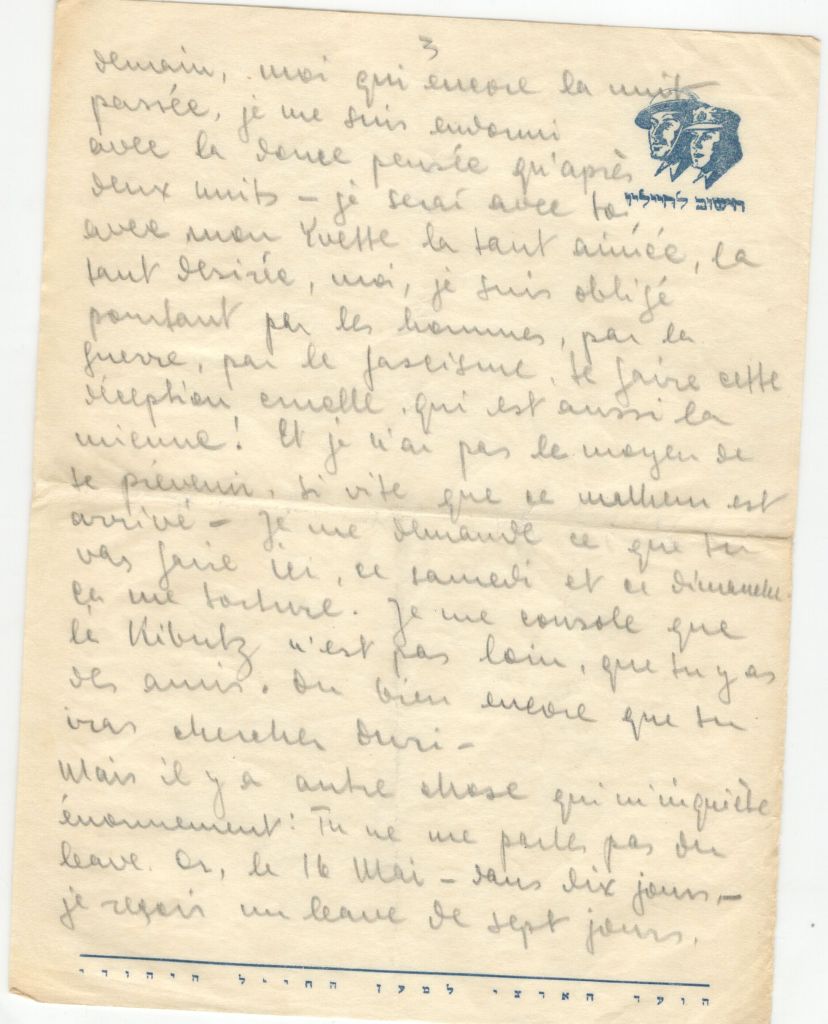 3
demain, moi qui encore la nuit
passée, je me suis endormi
avec la douce pensée qu'après
deux nuits – je serai avec toi
avec mon Yvette la tant aimée, la
tant desirée, moi, je suis obligé
pourtant par les hommes, par la
guerre, par le fascisme, te faire cette
déception cruelle, qui est aussi la
mienne! Et je n'ai pas le moyen de
te prévenir, si vite que ce malheur est
arrivé – Je me demande ce que tu
vas faire ici, ce samedi et ce dimanche.
ça me torture. Je me console que
le Kibutz n'est pas loin, que tu y as
des amis. Ou bien encore que tu
iras chercher –
Mais il y a autre chose qui m'inquiète
énormement: Tu ne me parles pas du
leave. Or, le 16 Mai – dans dix jours, –
je reçois un leave de sept jours.
הועד הארצי למען החייל היהודי